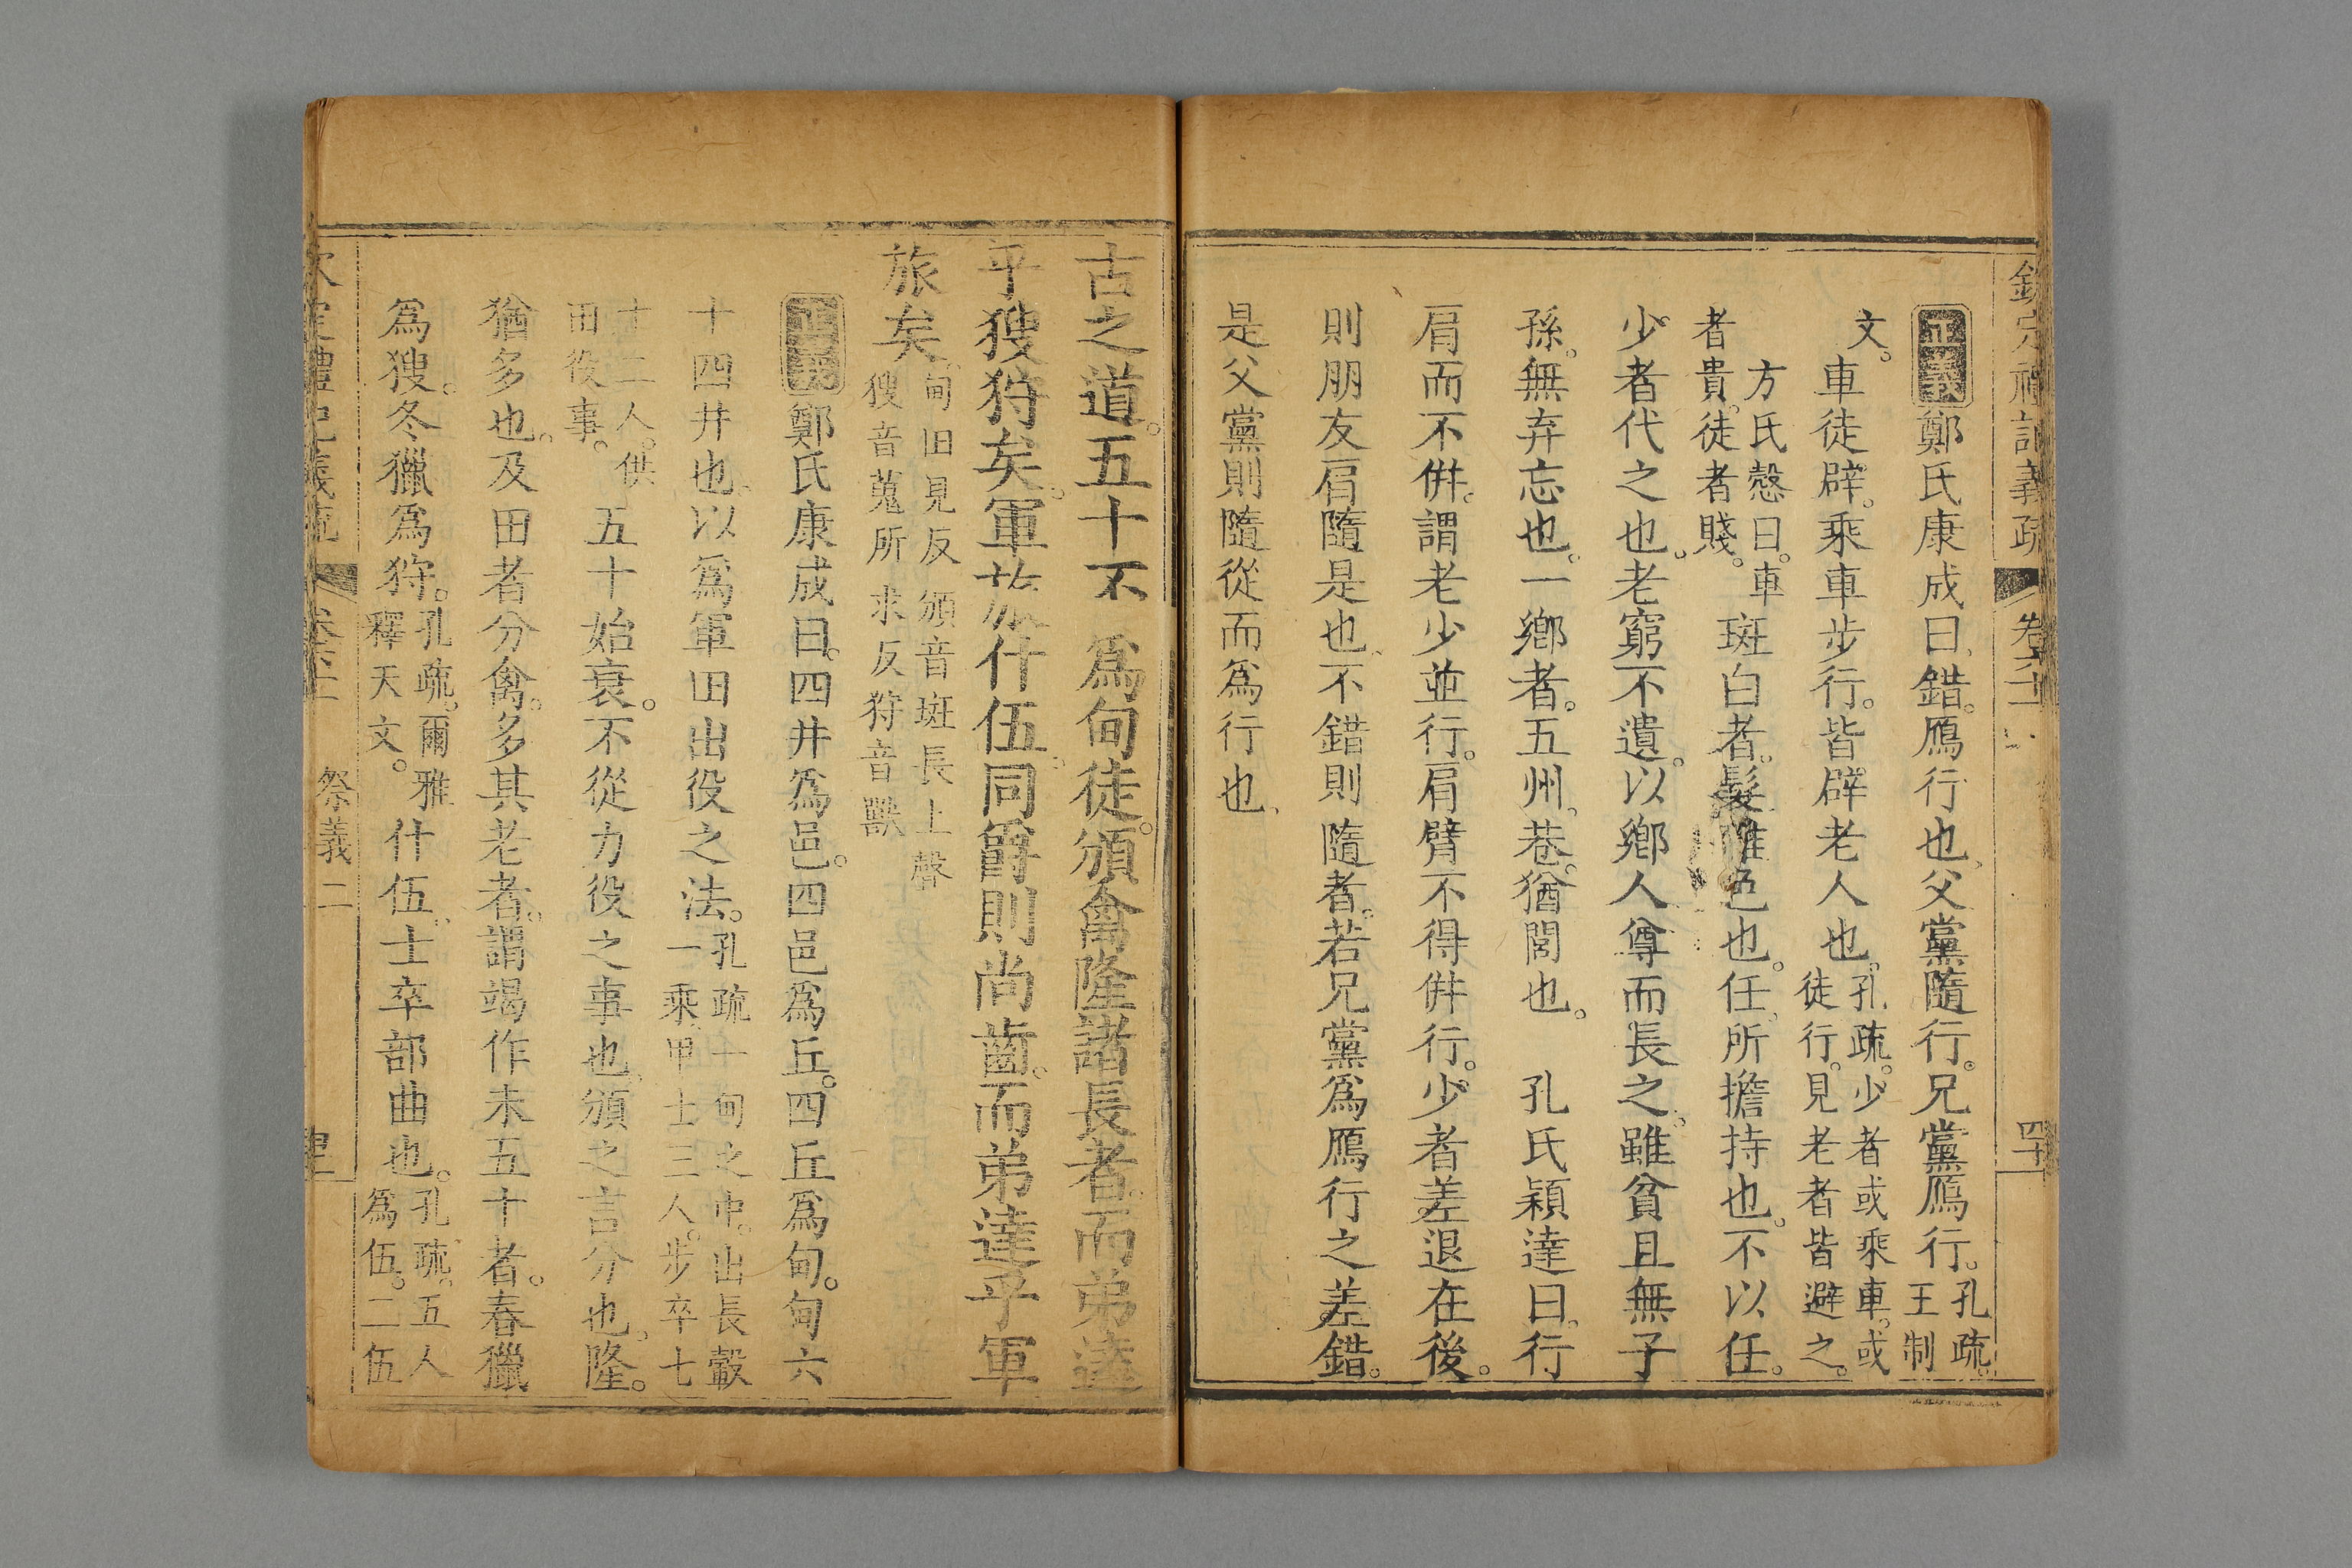 欽定禮記義疏 卷六十二 四十
正義鄭氏康成曰錯。鴈行也父黨隨行。兄黨鴈行。孔疏。王制
文。車徒辟。乘車步行。皆辟老人也。孔疏。少者或乘車。或徒行。見老者皆避之。
方氏慤曰。車者貴。徒者賤。斑白者。髮雜色也。任所擔持也。不以任。
少者代之也。老窮不遺。以鄉人尊而長之。雖貧且無子
孫。無弃忘也。一鄉者。五州。巷。猶閭也。 孔氏穎達曰。行
肩而不倂。謂老少並行。肩臂不得倂行。少者差退在後。
則朋友肩隨是也不錯則隨者。若兄黨爲鴈行之差錯。
是父黨則隨從而爲行也
古之道。五十不爲甸徒。頒禽隆諸長者。而弟達
乎獀狩矣。軍旅什伍。同爵則尚齒。而弟達乎軍
旅矣。甸旧見反頒音斑長上聲獀音蒐所求反狩音獸
正義鄭氏康成曰。四井爲邑。四邑爲丘。四丘爲甸。甸六
十四井也。以爲軍田出役之法。孔疏一甸之中。出長轂一乘。甲士三人。步卒七
十二人。供田役事。五十始衰。不從力役之事也。頒之言分也。隆。
猶多也。及田者分禽。多其老者。謂竭作未五十者。春獵
爲獀。冬獵爲狩。孔疏。爾雅釋天文。什伍。士卒部曲也。孔疏。五人爲伍。二伍
欽定禮記義疏 卷六十二 祭義二